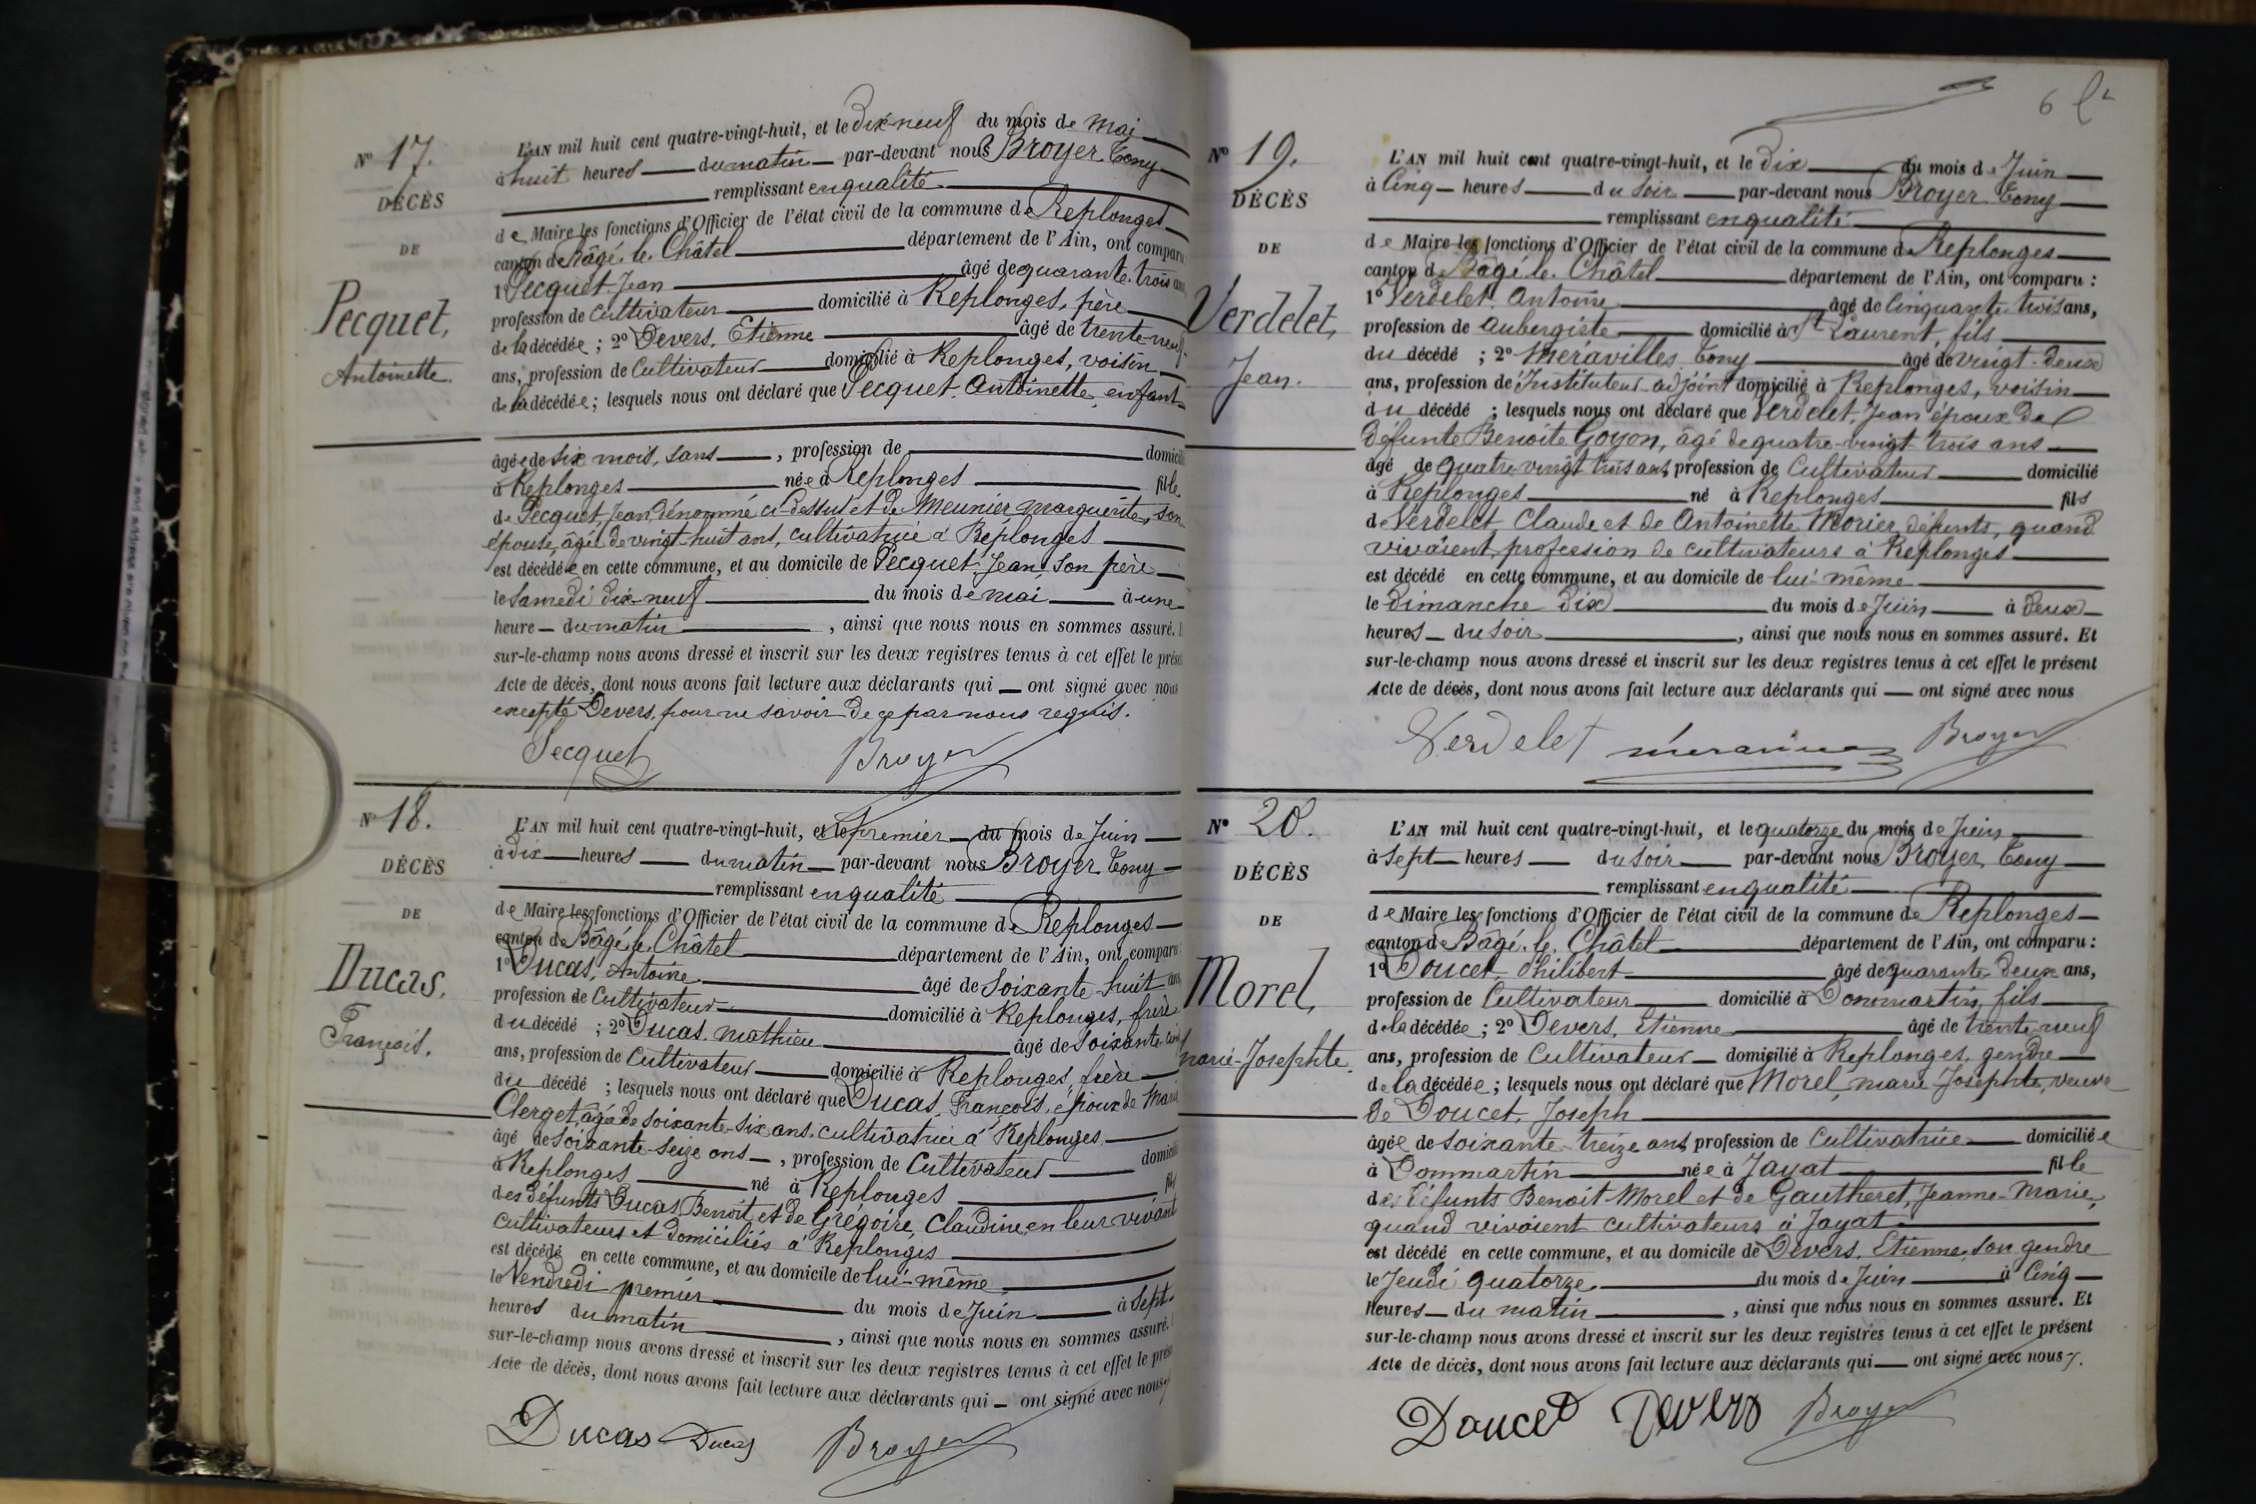 N° 17.
DÉCÈS
DE
Pecquet,
Antoinette.
L'AN mil huit cent quatre-vingt-huit, et le Dix-neuf du mois de Mai
à huit heures du matin par-devant nous Broyer Tony
remplissant en qualité
de Maire les fonctions d'Officier de l'état civil de la commune de Replonges
canton de Bâgé-le-Châtel département de l'Ain, ont comparu
1° Pecquet Jean âgé de quarante-trois ans
profession de Cultivateur domicilié à Replonges, père
de la décédée ; 2° Devers, Etienne âgé de trente-neuf
ans, profession de Cultivateur domicilié à Replonges, voisin
de la décédée ; lesquels nous ont déclaré que Pecquet Antoinette, enfant
âgée de six mois, sans , profession de domicili
à Replonges née à Replonges fille
de Pecquet, Jean, dénommé ci-dessus et de Meunier Marguerite, son
épouse, âgée de vingt-huit ans, cultivatrice à Replonges
est décédée en cette commune, et au domicile de Pecquet Jean son père
le Samedi dix-neuf du mois de mai à une
heure du matin , ainsi que nous nous en sommes assuré.
sur-le-champ nous avons dressé et inscrit sur les deux registres tenus à cet effet le prése
Acte de décès, dont nous avons fait lecture aux déclarants qui ont signé avec nous
excepté Devers, pour ne savoir de ce par nous requis.
Pecquet Broyer
N° 18.
DÉCÈS
DE
Ducas,
François.
L'AN mil huit cent quatre-vingt-huit, et le premier du mois de Juin
à dix heures du matin par-devant nous Broyer Tony
remplissant en qualité
de Maire les fonctions d'Officier de l'état civil de la commune de Replonges
canton de Bâgé-le-Châtel département de l'Ain, ont comparu
1° Ducas, Antoine âgé de Soixante-huit ans
profession de Cultivateur domicilié à Replonges, frère
du décédé ; 2° Ducas Mathieu âgé de Soixante
ans, profession de Cultivateur domicilié à Replonges, frère
du décédé ; lesquels nous ont déclaré que Ducas, François, époux de Marie
Clerget, âgée de soixante-six ans, cultivatrice à Replonges
âgé de soixante-seize ans , profession de Cultivateur domicili
à Replonges né à Replonges fils
des défunts Ducas Benoit et de Grégoire, Claudine, en leur vivant
cultivateurs et domiciliés à Replonges
est décédé en cette commune, et au domicile de lui-même
le Vendredi premier du mois de Juin à Sept
heures du matin , ainsi que nous nous en sommes assuré.
sur-le-champ nous avons dressé et inscrit sur les deux registres tenus à cet effet le prése
Acte de décès, dont nous avons fait lecture aux déclarants qui ont signé avec nous
Ducas Ducas Broyer
6
N° 19.
DÉCÈS
DE
Verdelet,
Jean.
L'AN mil huit cent quatre-vingt-huit, et le dix du mois de Juin
à Cinq heures du soir par-devant nous Broyer Tony
remplissant en qualité
de Maire les fonctions d'Officier de l'état civil de la commune de Replonges
canton de Bâgé-le-Châtel département de l'Ain, ont comparu :
1° Verdelet Antoine âgé de Cinquante-trois ans,
profession de Aubergiste domicilié à St Laurent, fils
du décédé ; 2° Méravilles Tony âgé de vingt-deux
ans, profession de Instituteur adjoint domicilié à Replonges, voisin
du décédé ; lesquels nous ont déclaré que Verdelet, Jean époux de
défunte Benoite Goyon, âgé de quatre-vingt-trois ans
âgé de quatre-vingt-trois ans, profession de Cultivateur domicilié
à Replonges né à Replonges fils
de Verdelet Claude et de Antoinette Morier, défunts, quand
vivaient, profession de cultivateurs à Replonges
est décédé en cette commune, et au domicile de lui-même
le Dimanche dix du mois de Juin à deux
heures du soir , ainsi que nous nous en sommes assuré. Et
sur-le-champ nous avons dressé et inscrit sur les deux registres tenus à cet effet le présent
Acte de décès, dont nous avons fait lecture aux déclarants qui ont signé avec nous
Verdelet Broyer
N° 20.
DÉCÈS
DE
Morel,
Marie-Josephte.
L'AN mil huit cent quatre-vingt-huit, et le quatorze du mois de Juin
à sept heures du soir par-devant nous Broyer, Tony
remplissant en qualité
de Maire les fonctions d'Officier de l'état civil de la commune de Replonges
canton de Bâgé-le-Châtel département de l'Ain, ont comparu :
1° Doucet, Philibert âgé de quarante-deux ans,
profession de Cultivateur domicilié à Dommartin, fils
de la décédée ; 2° Devers, Etienne âgé de trente-neuf
ans, profession de Cultivateur domicilié à Replonges, gendre
de la décédée ; lesquels nous ont déclaré que Morel, Marie Josephte, veuve
de Doucet, Joseph
âgée de soixante-treize ans, profession de Cultivatrice domiciliée
à Dommartin née à Jayat fille
des défunts Benoit Morel et de Gautheret, Jeanne-Marie,
quand vivaient cultivateurs à Jayat
est décédé en cette commune, et au domicile de Devers, Etienne, son gendre
le Jeudi quatorze du mois de Juin à Cinq
heures du matin , ainsi que nous nous en sommes assuré. Et
sur-le-champ nous avons dressé et inscrit sur les deux registres tenus à cet effet le présent
Acte de décès, dont nous avons fait lecture aux déclarants qui ont signé avec nous.
Doucet Devers Broyer